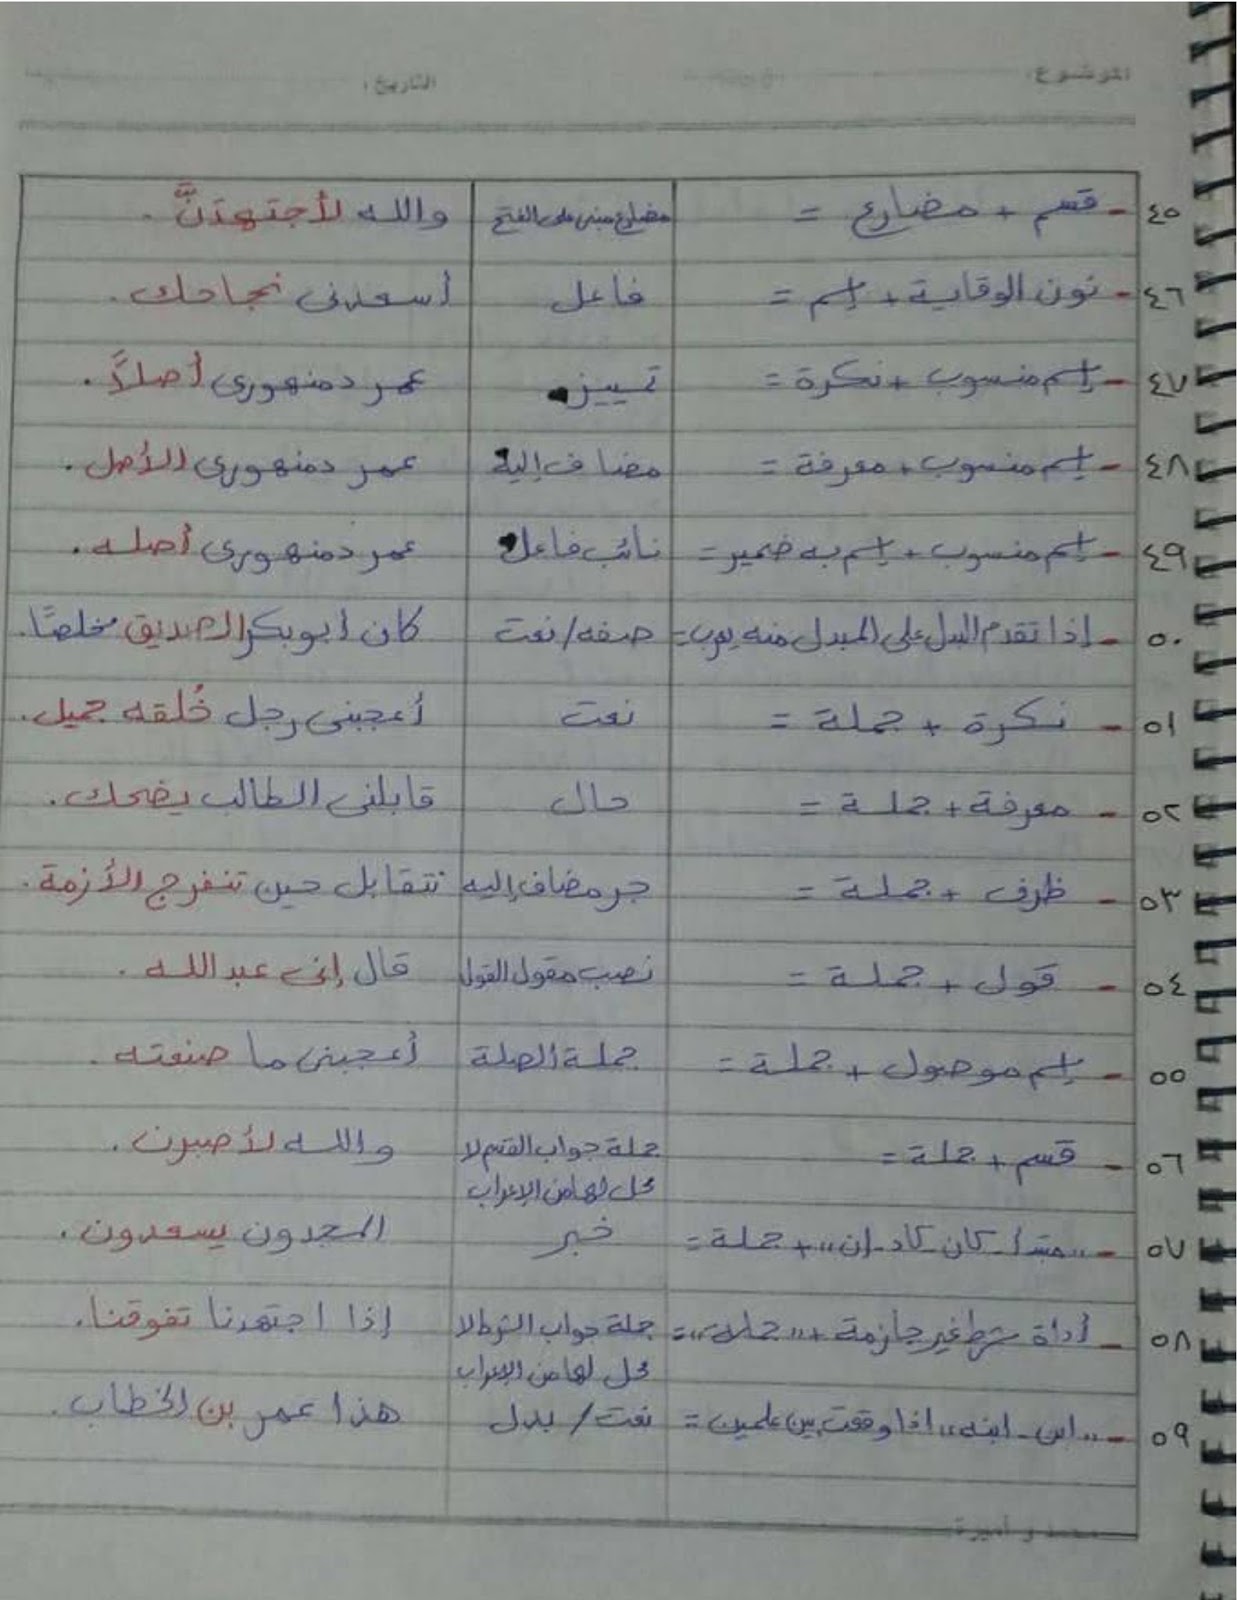 الموضوع: التاريخ:
٤٥ - قسم + مضارع = مضارع مبنى على الفتح والله لأجتهدنَّ.
٤٦ - نون الوقاية + إسم = فاعل أسعدنى نجاحك.
٤٧ - إسم منسوب + نكرة = تمييز عمر دمنهورى أصلاً.
٤٨ - إسم منسوب + معرفة = مضاف إليه عمر دمنهورى الأصل.
٤٩ - إسم منسوب + إسم به ضمير = نائب فاعل عمر دمنهورى أصله.
٥٠ - إذا تقدم البدل على المبدل منه يعرب = صفه/نعت كان أبو بكر الصديق مخلصًا.
٥١ - نكرة + جملة = نعت أعجبنى رجل خُلقه جميل.
٥٢ - معرفة + جملة = حال قابلنى الطالب يضحك.
٥٣ - ظرف + جملة = جر مضاف إليه نتقابل حين تنفرج الأزمة.
٥٤ - قول + جملة = نصب مقول القول قال إنى عبد الله.
٥٥ - إسم موصول + جملة = جملة الصلة أعجبنى ما صنعته.
٥٦ - قسم + جملة = جملة جواب القسم لا والله لأصبرن.
محل لها من الإعراب
٥٧ - "مبتدأ - كان - كاد - إن" + جملة = خبر المجدون يسعدون.
٥٨ - أداة شرط غير جازمة + "جملة" = جملة جواب الشرط لا إذا اجتهدنا تفوقنا.
محل لها من الإعراب
٥٩ - "ابن - ابنه" اذا وقعت بين علمين = نعت/بدل هذا عمر بن الخطاب.